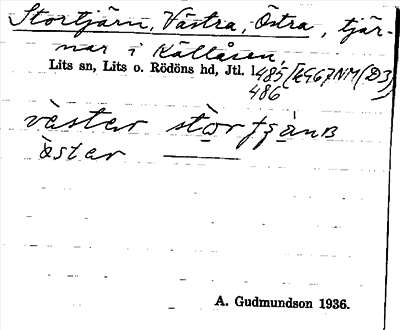 Stortjärn, Västra, Östra, tjär-
nar i Källåsen,
Lits sn, Lits o. Rödöns hd, Jtl. 1485
486
väster
öster
A. Gudmundson 1936.